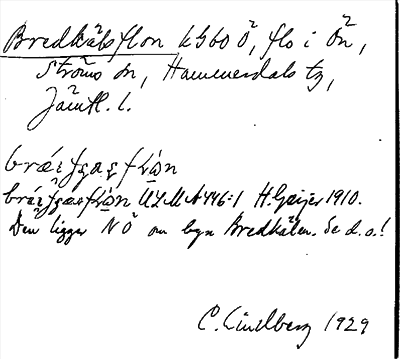 Bredkälsflon kGboÖ, flo i ön,
Ströms sn, Hammerdals tg,
Jämtl. l.
ULMA 446:1 H. Geijer 1910.
Den ligger NÖ om byn Bredkälen. Se d.o.!
C. Lindberg 1929